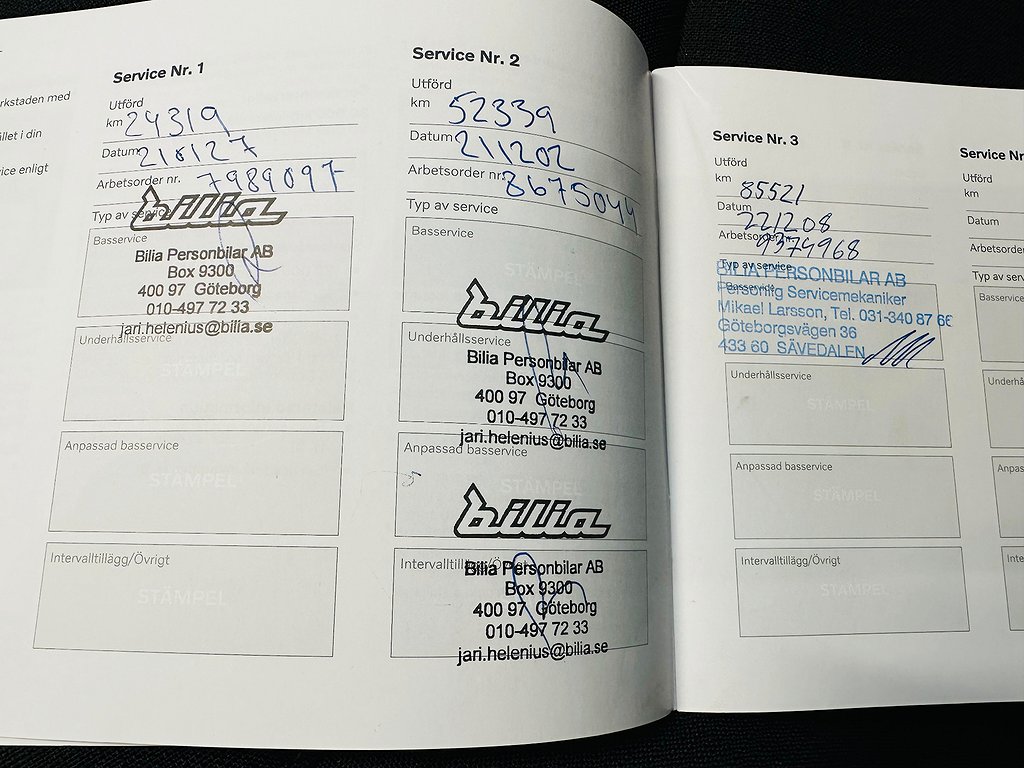 rkstaden med
llet i din
ice enligt
Service Nr. 1
Utförd
km 24319
Datum 210127
Arbetsorder nr. 7989097
Typ av service
bilia
Basservice
Bilia Personbilar AB
Box 9300
400 97 Göteborg
010-497 72 33
jari.helenius@bilia.se
Underhållsservice
STÄMPEL
Anpassad basservice
STÄMPEL
Intervalltillägg/Övrigt
STÄMPEL
Service Nr. 2
Utförd
km 52339
Datum 211202
Arbetsorder nr. 8675044
Typ av service
Basservice
STÄMPEL
bilia
Underhållsservice
Bilia Personbilar AB
Box 9300
400 97 Göteborg
010-497 72 33
jari.helenius@bilia.se
Anpassad basservice
bilia
Intervalltillägg/Övrigt
Bilia Personbilar AB
Box 9300
400 97 Göteborg
010-497 72 33
jari.helenius@bilia.se
Service Nr. 3
Utförd
km 85521
Datum 221208
Arbetsorder 9374968
Typ av service
Basservice
BILIA PERSONBILAR AB
Personlig Servicemekaniker
Mikael Larsson, Tel. 031-340 87 66
Göteborgsvägen 36
433 60 SÄVEDALEN
Underhållsservice
STÄMPEL
Anpassad basservice
STÄMPEL
Intervalltillägg/Övrigt
STÄMPEL
Service Nr
Utförd
km
Datum
Arbetsorder
Typ av serv
Basservice
Underhå
Anpassa
Inte